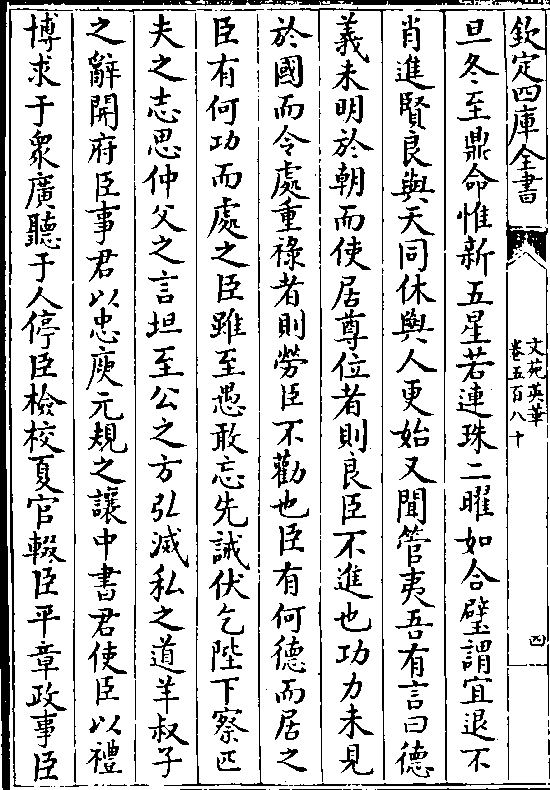 欽定四庫全書
文苑英華
卷五百八十
四
旦冬至鼎命惟新五星若連珠二曜如合璧謂宜退不
肖進賢良與天同休與人更始又聞管夷吾有言曰德
義未明於朝而使居尊位者則良臣不進也功力未見
於國而令處重祿者則勞臣不勸也臣有何德而居之
臣有何功而處之臣雖至愚敢忘先誡伏乞陛下察匹
夫之志思仲父之言坦至公之方弘滅私之道羊叔子
之辭開府臣事君以忠庾元規之讓中書君使臣以禮
博求于衆廣聽于人停臣檢校夏官輟臣平章政事臣